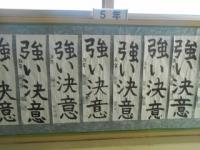 5年
強い決意
強い決意
強い決意
強い決意
強い決意
強い決意
強い決意